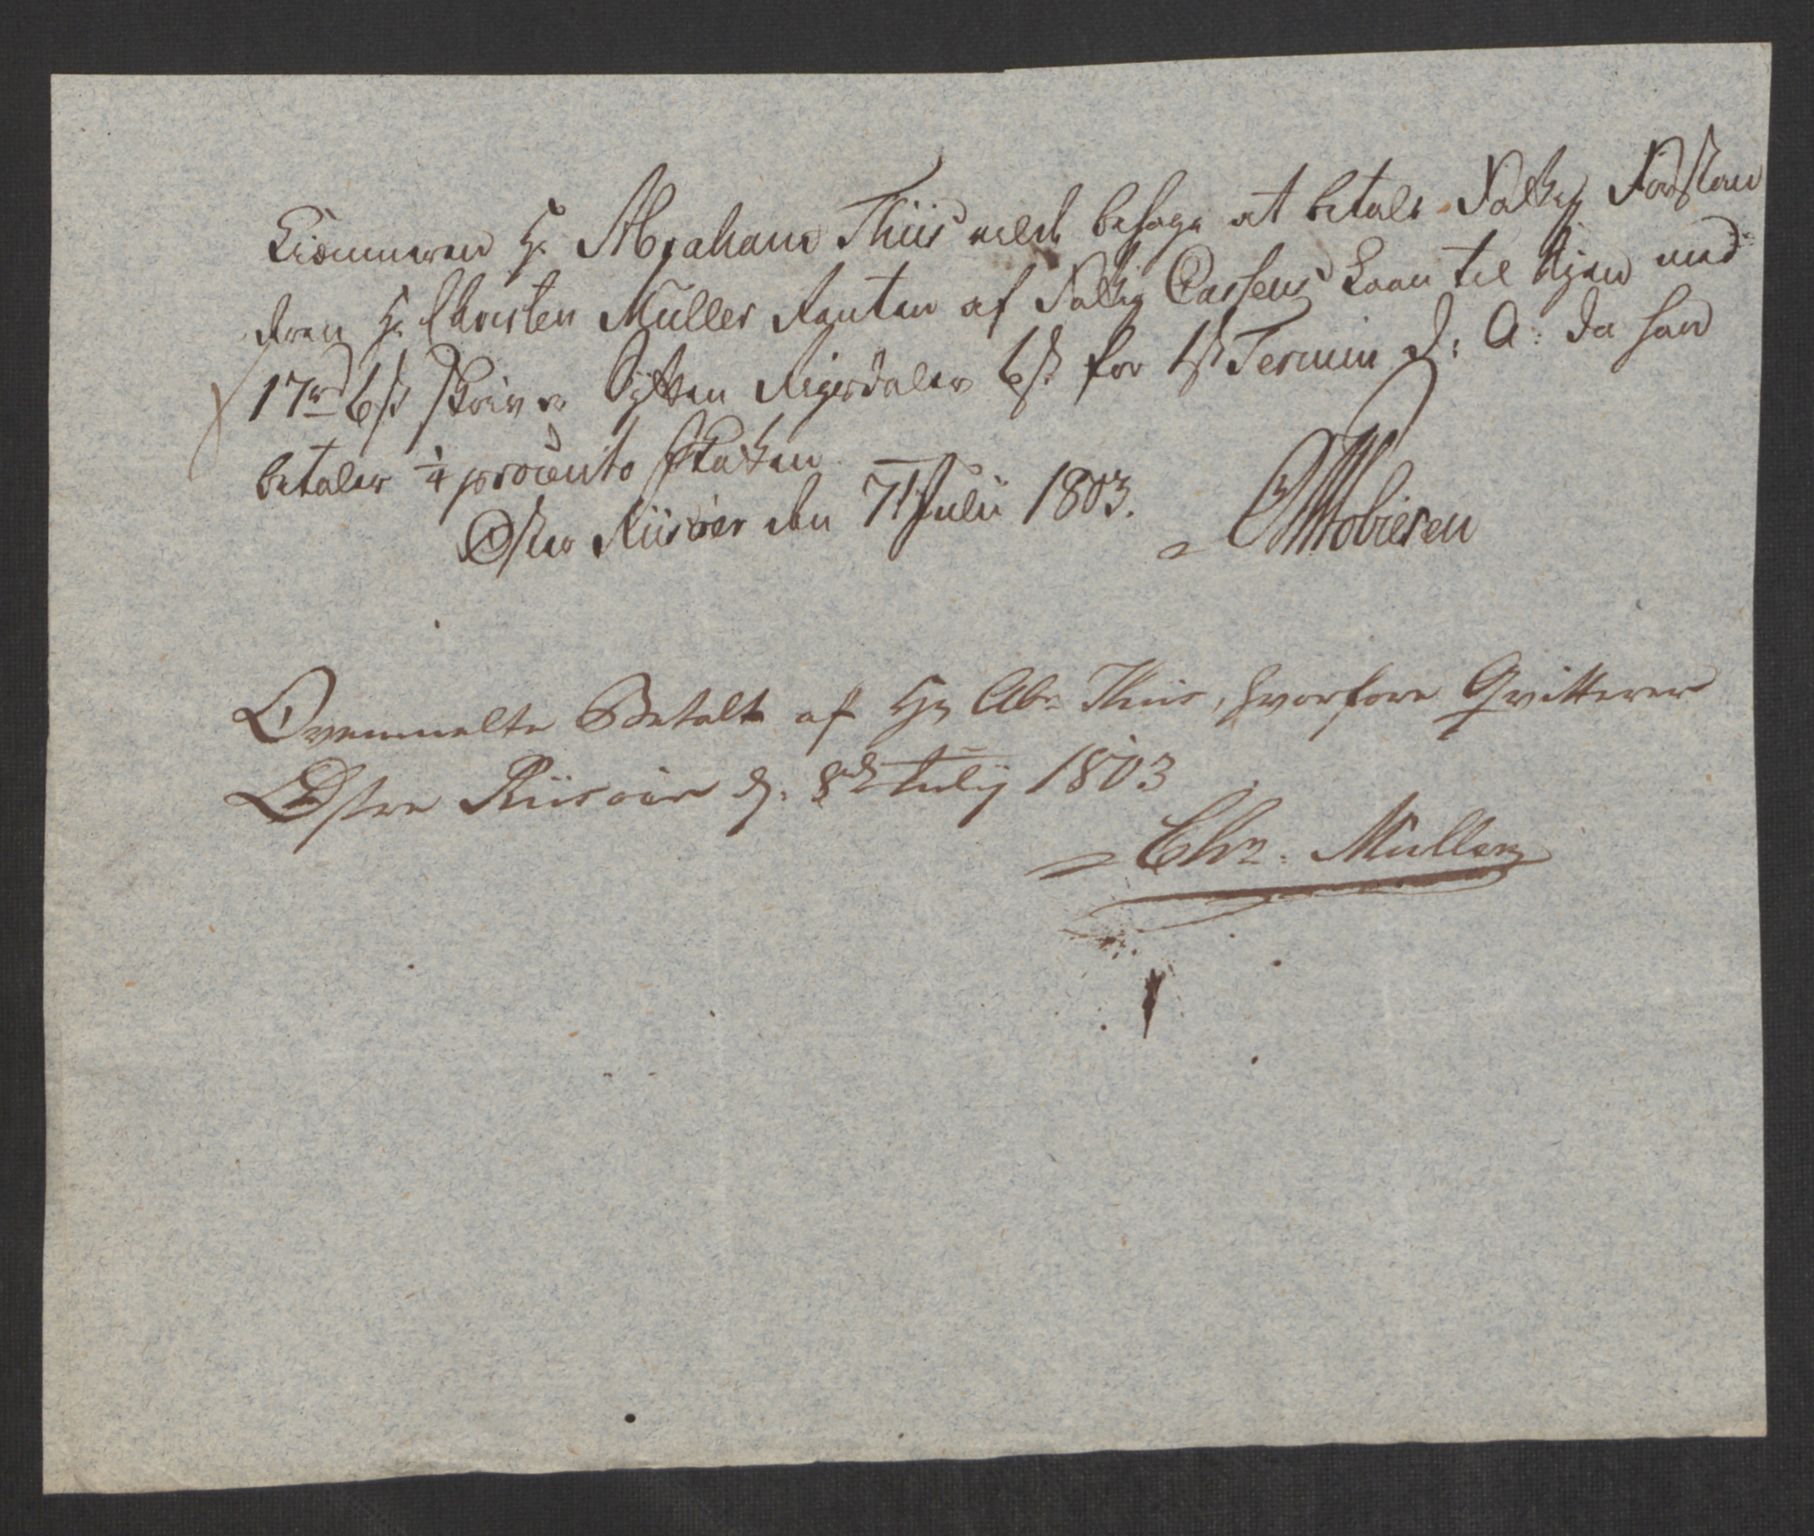 Kiæmneren Hr. Abraham Thiis vilde behage at betale Fattig Forstan
deren Hr. Christen Müller Renten af Fattig Cassens Laan til Byen med
17rd 6s skriver Sytten Rigsdaler 6s. for 1ste Termin d: A: da han
betaler 1/4 procento Skatten
Øster Riisöer den 7de Julii 1803.
Ovenmelte Betalt af Hr Abr. Thiis, hvorfore Qvitterer
Østre Riisöer d. 8de July 1803
Chr. Müller